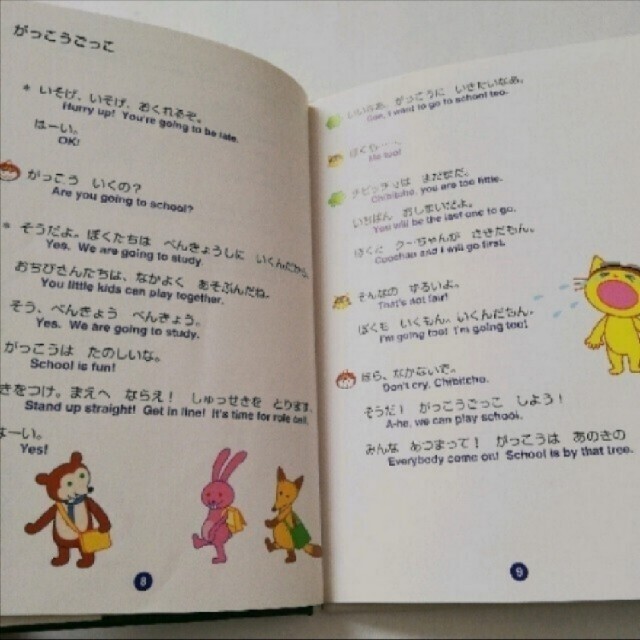 がっこうごっこ
* いそげ、いそげ、おくれるぞ。
Hurry up! You're going to be late.
はーい。
OK!
がっこう いくの?
Are you going to school?
* そうだよ。ぼくたちは べんきょうしに いくんだから。
Yes. We are going to study.
おちびさんたちは、なかよく あそぶんだね。
You little kids can play together.
そう、べんきょう べんきょう。
Yes. We are going to study.
がっこうは たのしいな。
School is fun!
きをつけ。まえへ ならえ! しゅっせきを とります。
Stand up straight! Get in line! It's time for role call.
はーい。
Yes!
8
いいなあ、がっこうに いきたいなあ。
Gee, I want to go to school too.
ぼくも
Me too!
チビッチョは まだだめだ。
Chibitcho, you are too little.
いちばん おしまいだよ。
You will be the last one to go.
ぼくに クーちゃんが さきだもん。
Coochan and I will go first.
そんなの ずるいよ。
That's not fair!
ぼくも いくもん。いくんだもん。
I'm going too! I'm going too!
ほら、なかないで。
Don't cry, Chibitcho.
そうだ! がっこうごっこ しよう!
A-ha, we can play school.
みんな あつまって! がっこうは あのきの
Everybody come on! School is by that tree.
9